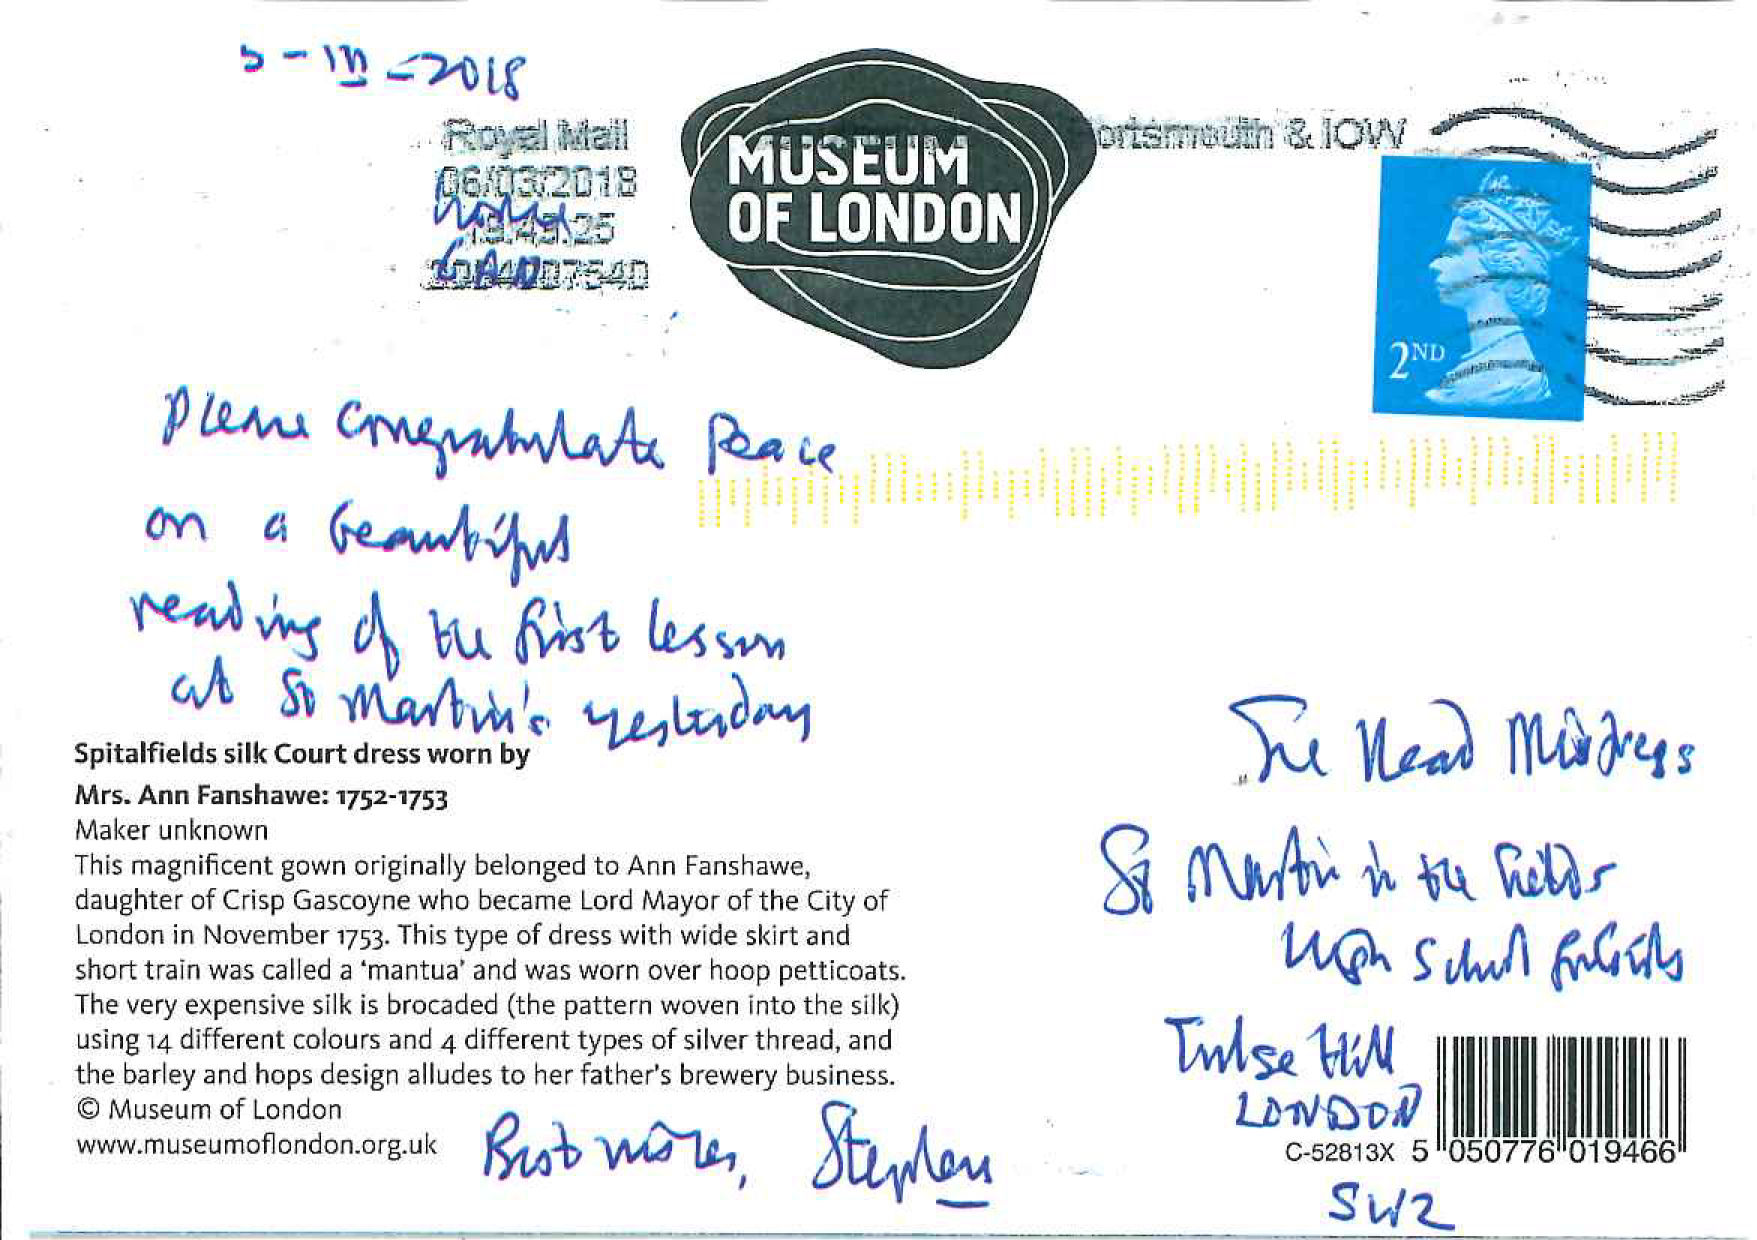 5-III-2018
Royal Mail
06/03/2018
MUSEUM
OF LONDON
& IOW
2ND
Please Congratulate Peace
on a beautiful
reading of the first lesson
at St Martin's yesterday
Spitalfields silk Court dress worn by
Mrs. Ann Fanshawe: 1752-1753
Maker unknown
This magnificent gown originally belonged to Ann Fanshawe,
daughter of Crisp Gascoyne who became Lord Mayor of the City of
London in November 1753. This type of dress with wide skirt and
short train was called a ‘mantua’ and was worn over hoop petticoats.
The very expensive silk is brocaded (the pattern woven into the silk)
using 14 different colours and 4 different types of silver thread, and
the barley and hops design alludes to her father's brewery business.
© Museum of London
www.museumoflondon.org.uk
Best wishes, Stephen
The Head Mistress
St Martin in the Fields
High School for Girls
Tulse Hill
LONDON
C-52813X 5 050776 019466
SW2